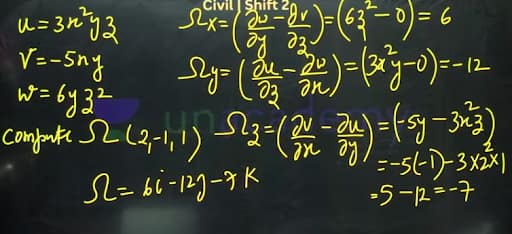 Civil | Shift 2
u = 3x²yz
V = -5xy
w = 6yz²
compute Ω (2,-1,1)
Ωx = (∂w/∂y - ∂v/∂z) = (6z² - 0) = 6
Ωy = (∂u/∂z - ∂w/∂x) = (3x²y - 0) = -12
Ωz = (∂v/∂x - ∂u/∂y) = (-5y - 3x²z)
= -5(-1) - 3×2²×1
= 5 - 12 = -7
Ω = 6i - 12j - 7K